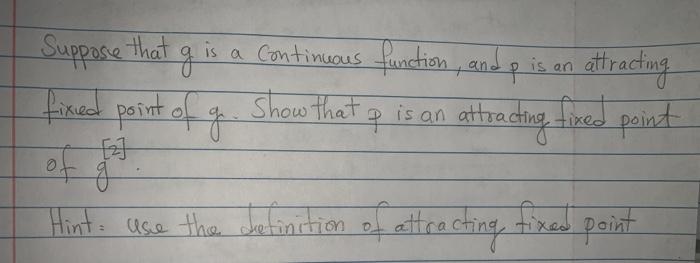 Suppose that g is a continuous function, and p is an attracting
fixed point of g. Show that p is an attracting fixed point
of g^[2].
Hint: use the definition of attracting fixed point